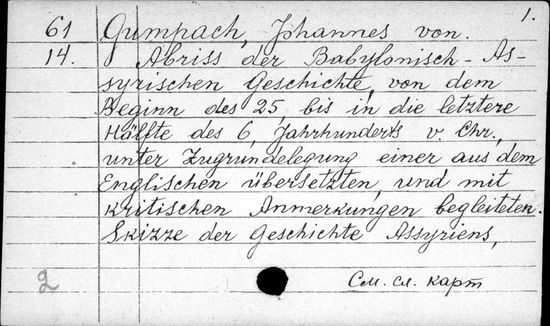 1.
61 Gumpach, Johannes von.
14. Abriss der Babylonisch-As-
syrischen Geschichte, von dem
Beginn des 25, bis in die letztere
Hälfte des 6, Jahrhunderts v. Chr.,
unter Zugrundelegung einer aus dem
Englischen übersetzten, und mit
kritischen Anmerkungen begleiteten.
Skizze der Geschichte Assyriens,
2 См. сл. карт